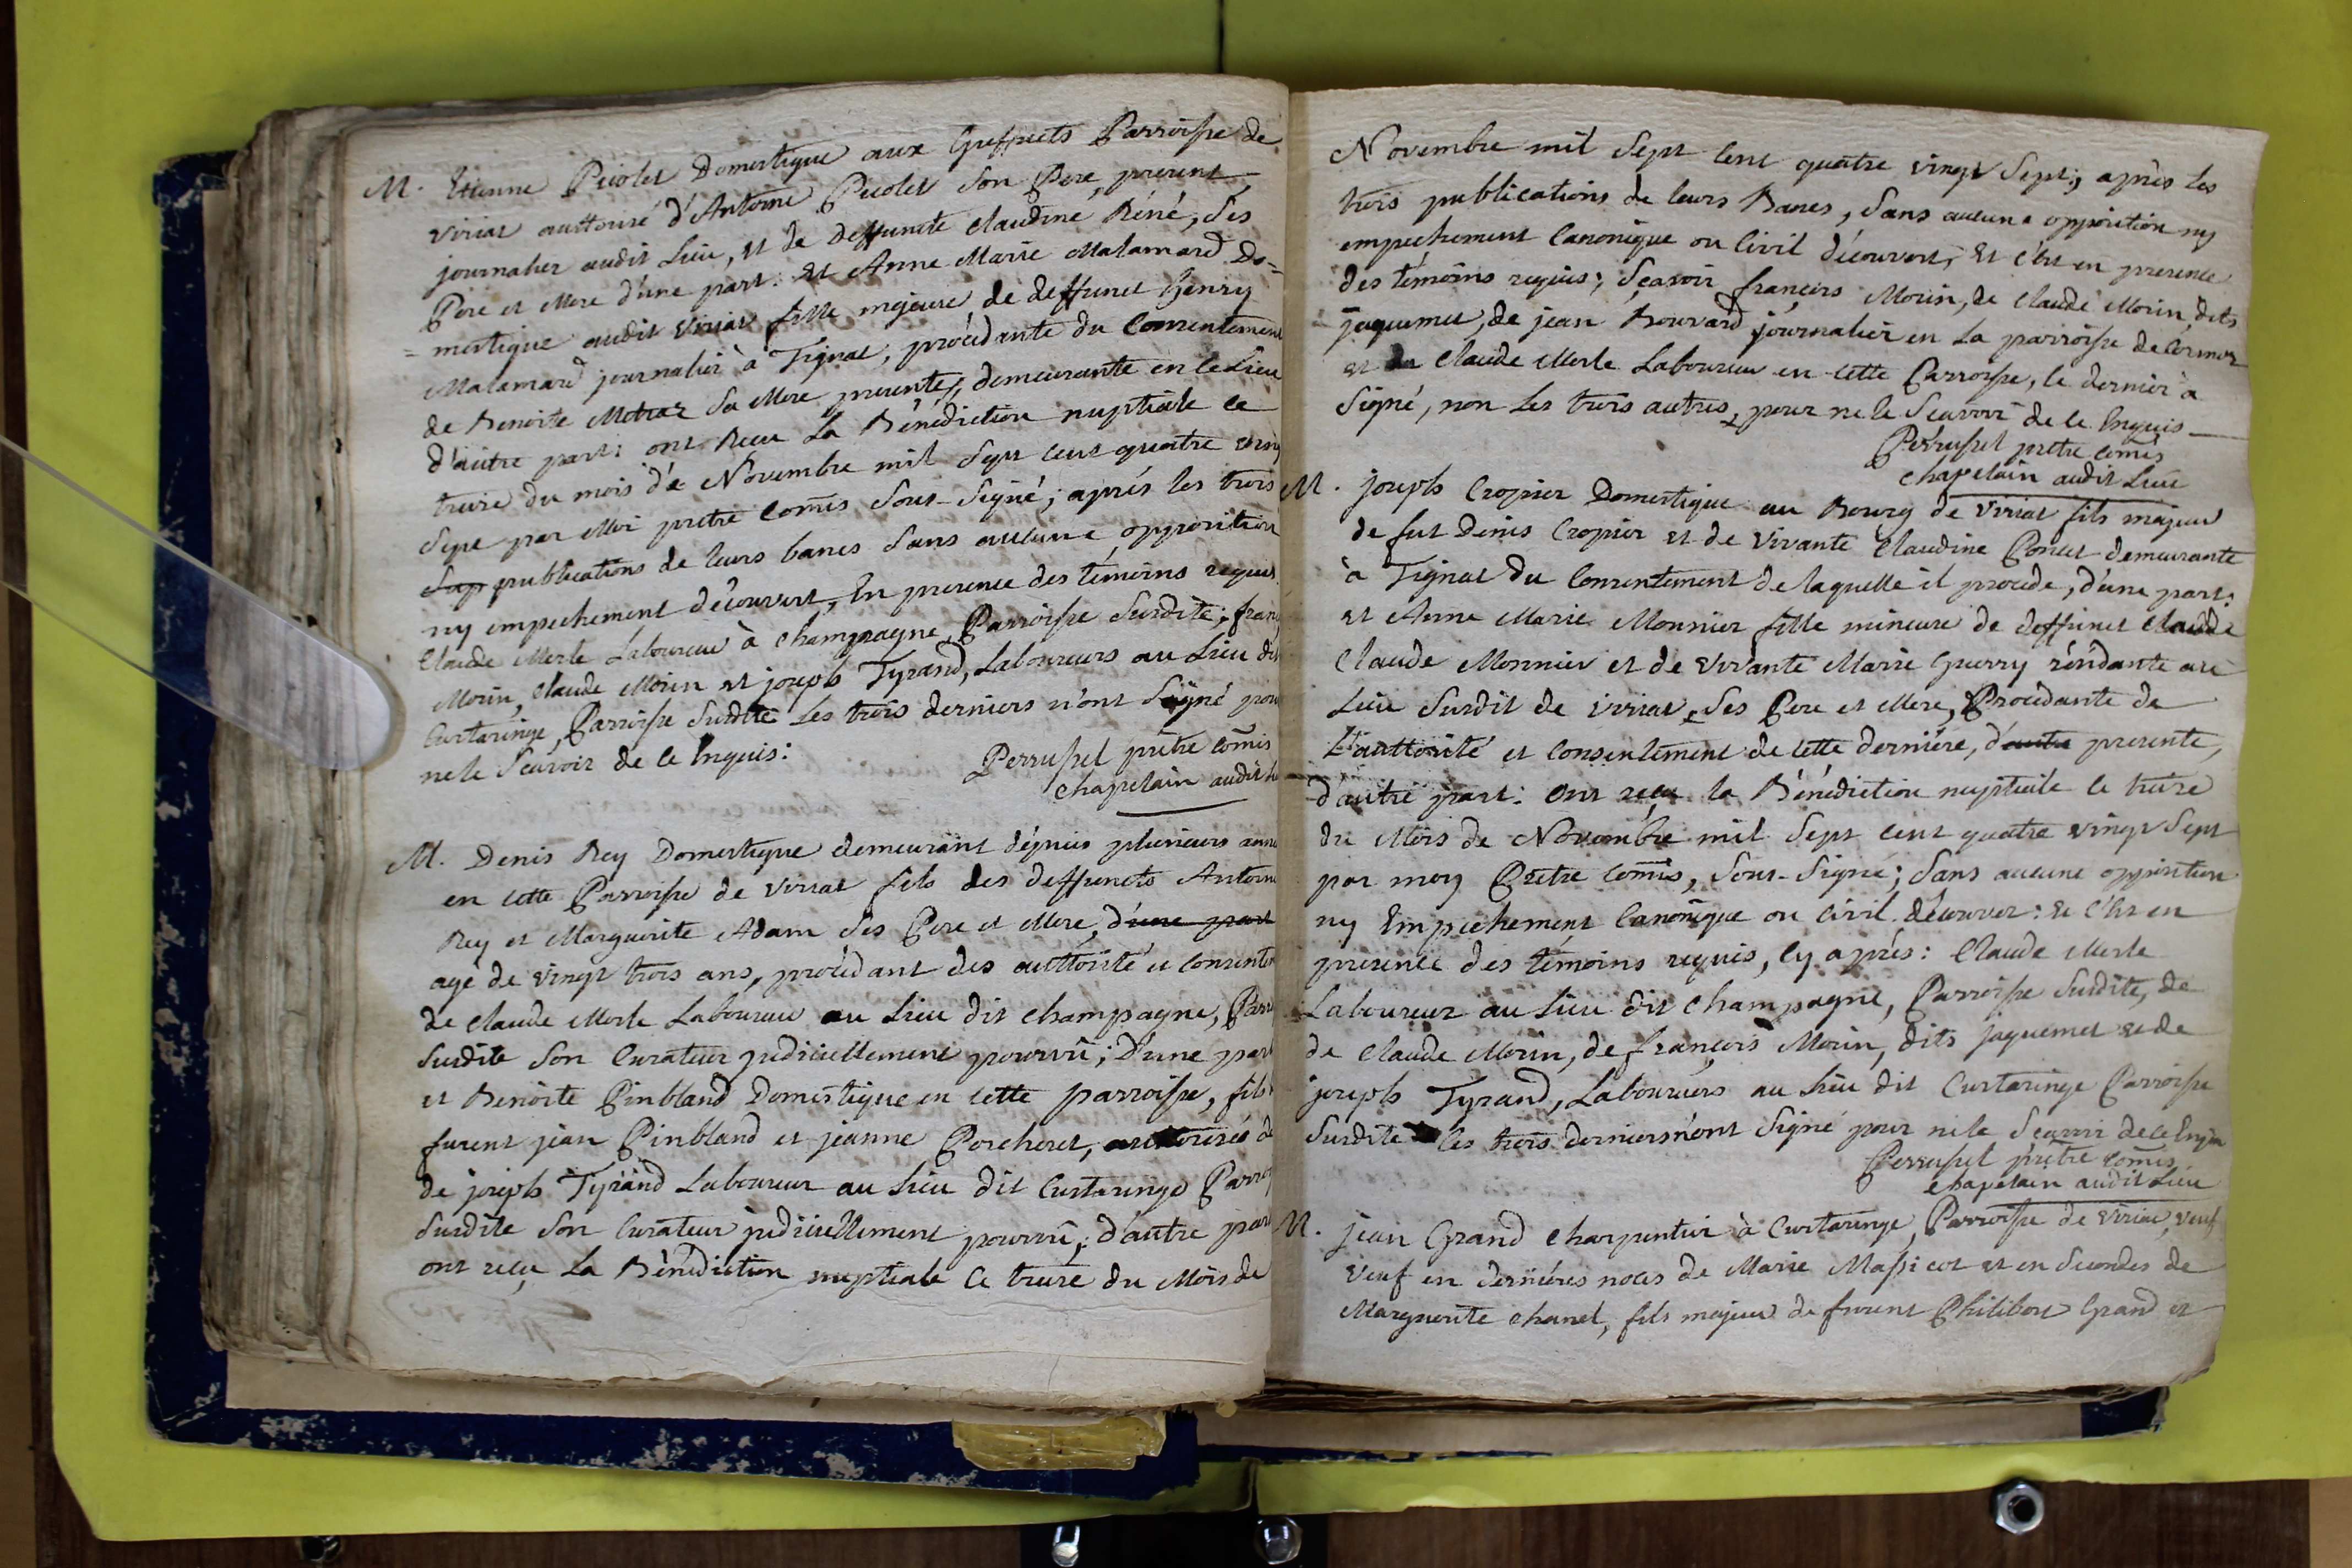 M. Etienne Picolet Domestique aux Greffets Parroisse de
viriat auttorisé d'Antoine Picolet son Pere, present,
journalier audit Lieu, et de deffuncte claudine Réné, ses
Pere et Mere d'une part: et Anne Marie Malamard Do=
=mestique audit viriat fille majeure de deffunct henry
Malamard journalier à Tignat, procédante du Consentement
de Benoite sa Mere presente, demeurante en ce Lieu
d'autre part: ont Recu La Bénédiction nuptiale le
treize du mois de Novembre mil sept cent quatre ving
sept par Moi pretre comis sous-signé; aprés les trois
publications de leurs bancs sans aucune opposition
ny empechement découvert, En presence des témoins requis.
Claude Merle Laboureur à champagne, Parroisse susdite; franç
Morin, Claude Morin et joseph Tyrand, Laboureurs au Lieu dit
Curtaringe, Parroisse susdite Les trois derniers n'ont signé pour
ne le sçavoir de ce Enquis:
Perrusset prètre comis
chapelain audit
M. Denis Rey Domestique demeurant dépuis plusieurs anné
en cette Parroisse de viriat fils des deffuncts Antoine
Rey et Marguerite Adam ses Pere et Mere, d'une part
agé de vingt trois ans, procédant des auttorité et consente
de claude Merle Laboureur au Lieu dit champagne, Parr
susdite son Curateur judiciellement pourvû; d'une part
et Benoite Pinbland Domestique en cette parroisse, fille
furent jean Pinbland et jeanne Porcheret, auttorisée de
de joseph Tyrand Laboureur au Lieu dit Curtaringe Parroi
susdite son Curateur judiciellement pourvû; d'autre part
ont reçu La Bénédiction nuptiale Le treize du Mois de
Novembre mil sept cent quatre vingt sept; aprés les
trois publications de leurs Bancs, sans aucune opposition ny
empechement Canonique ou Civil découvert, Et c'est en presence
des témoins requis; sçavoir françois Morin, de claude Morin, dits
jaquemet, de jean Bouvard journalier en La parroisse de Cormoz
et Claude Merle Laboureur en cette Parroisse, le dernier a
signé, non Les trois autres, pour ne le sçavoir de ce Enquis
Perrusset pretre comis
chapelain audit Lieu
M. joseph Cropier Domestique au Bourg de viriat fils majeur
de fut Denis Cropier et de vivante Claudine Poncet demeurante
à Tignat du Consentement de laquelle il procede, d'une part:
et Anne Marie Monnier fille mineure de deffunct claude
Claude Monnier et de vivante Marie Guerry résidante au
Lieu susdit de viriat, ses Pere et Mere, Procédante de
L'auttorité et consentement de cette derniére, d'autre presente,
d'autre part: Ont reçu la Bénédiction nuptiale le treize
du Mois de Novembre mil sept cent quatre vingt sept
par moy Prétre Comis, sous-signé; sans aucune opposition
ny Empechement Canonique ou civil découvert: et c'est en
presence des témoins requis, Cy aprés: Claude Merle
Laboureur au Lieu dit champagne, Parroisse susdite, de
de Claude Morin, de françois Morin, dits jaquemet et de
joseph Tyrand, Laboureurs au Lieu dit Curtaringe Parroisse
susdite Les trois derniers n'ont signé pour ne le sçavoir de ce Enquis
Perrusset prètre comis
chapelain audit Lieu
M. jean Grand charpentier à Curtaringe, Parroisse de viriat, veuf
veuf en derniéres noces de Marie Massicot et en secondes de
Marguerite chanel, fils majeur de furent Philibert Grand et